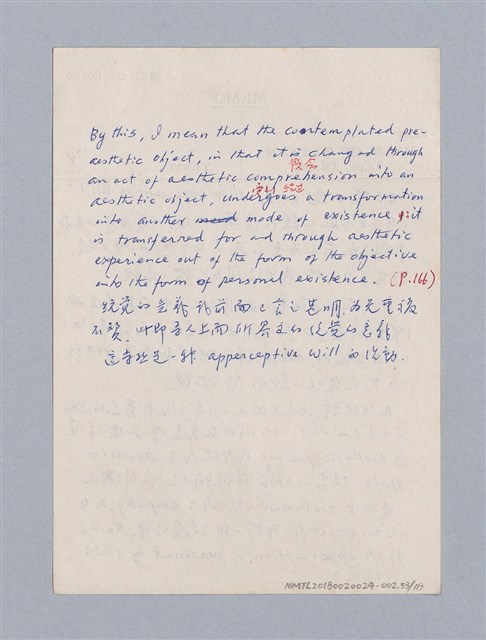 By this, I mean that the contemplated pre-
aesthetic object, in that it is changed through
領会
an act of aesthetic comprehension into an
経過
aesthetic object, undergoes a transformation
into another mode of existence; it
is transferred for and through aesthetic
experience out of the form of the objective
into the form of personal existence. (P.166)
統覚的意義 我前面已言之甚明, 为免重複
不赘.
这
是一种 apperceptive will 的活動.
NMTL20180020024-002.53/113